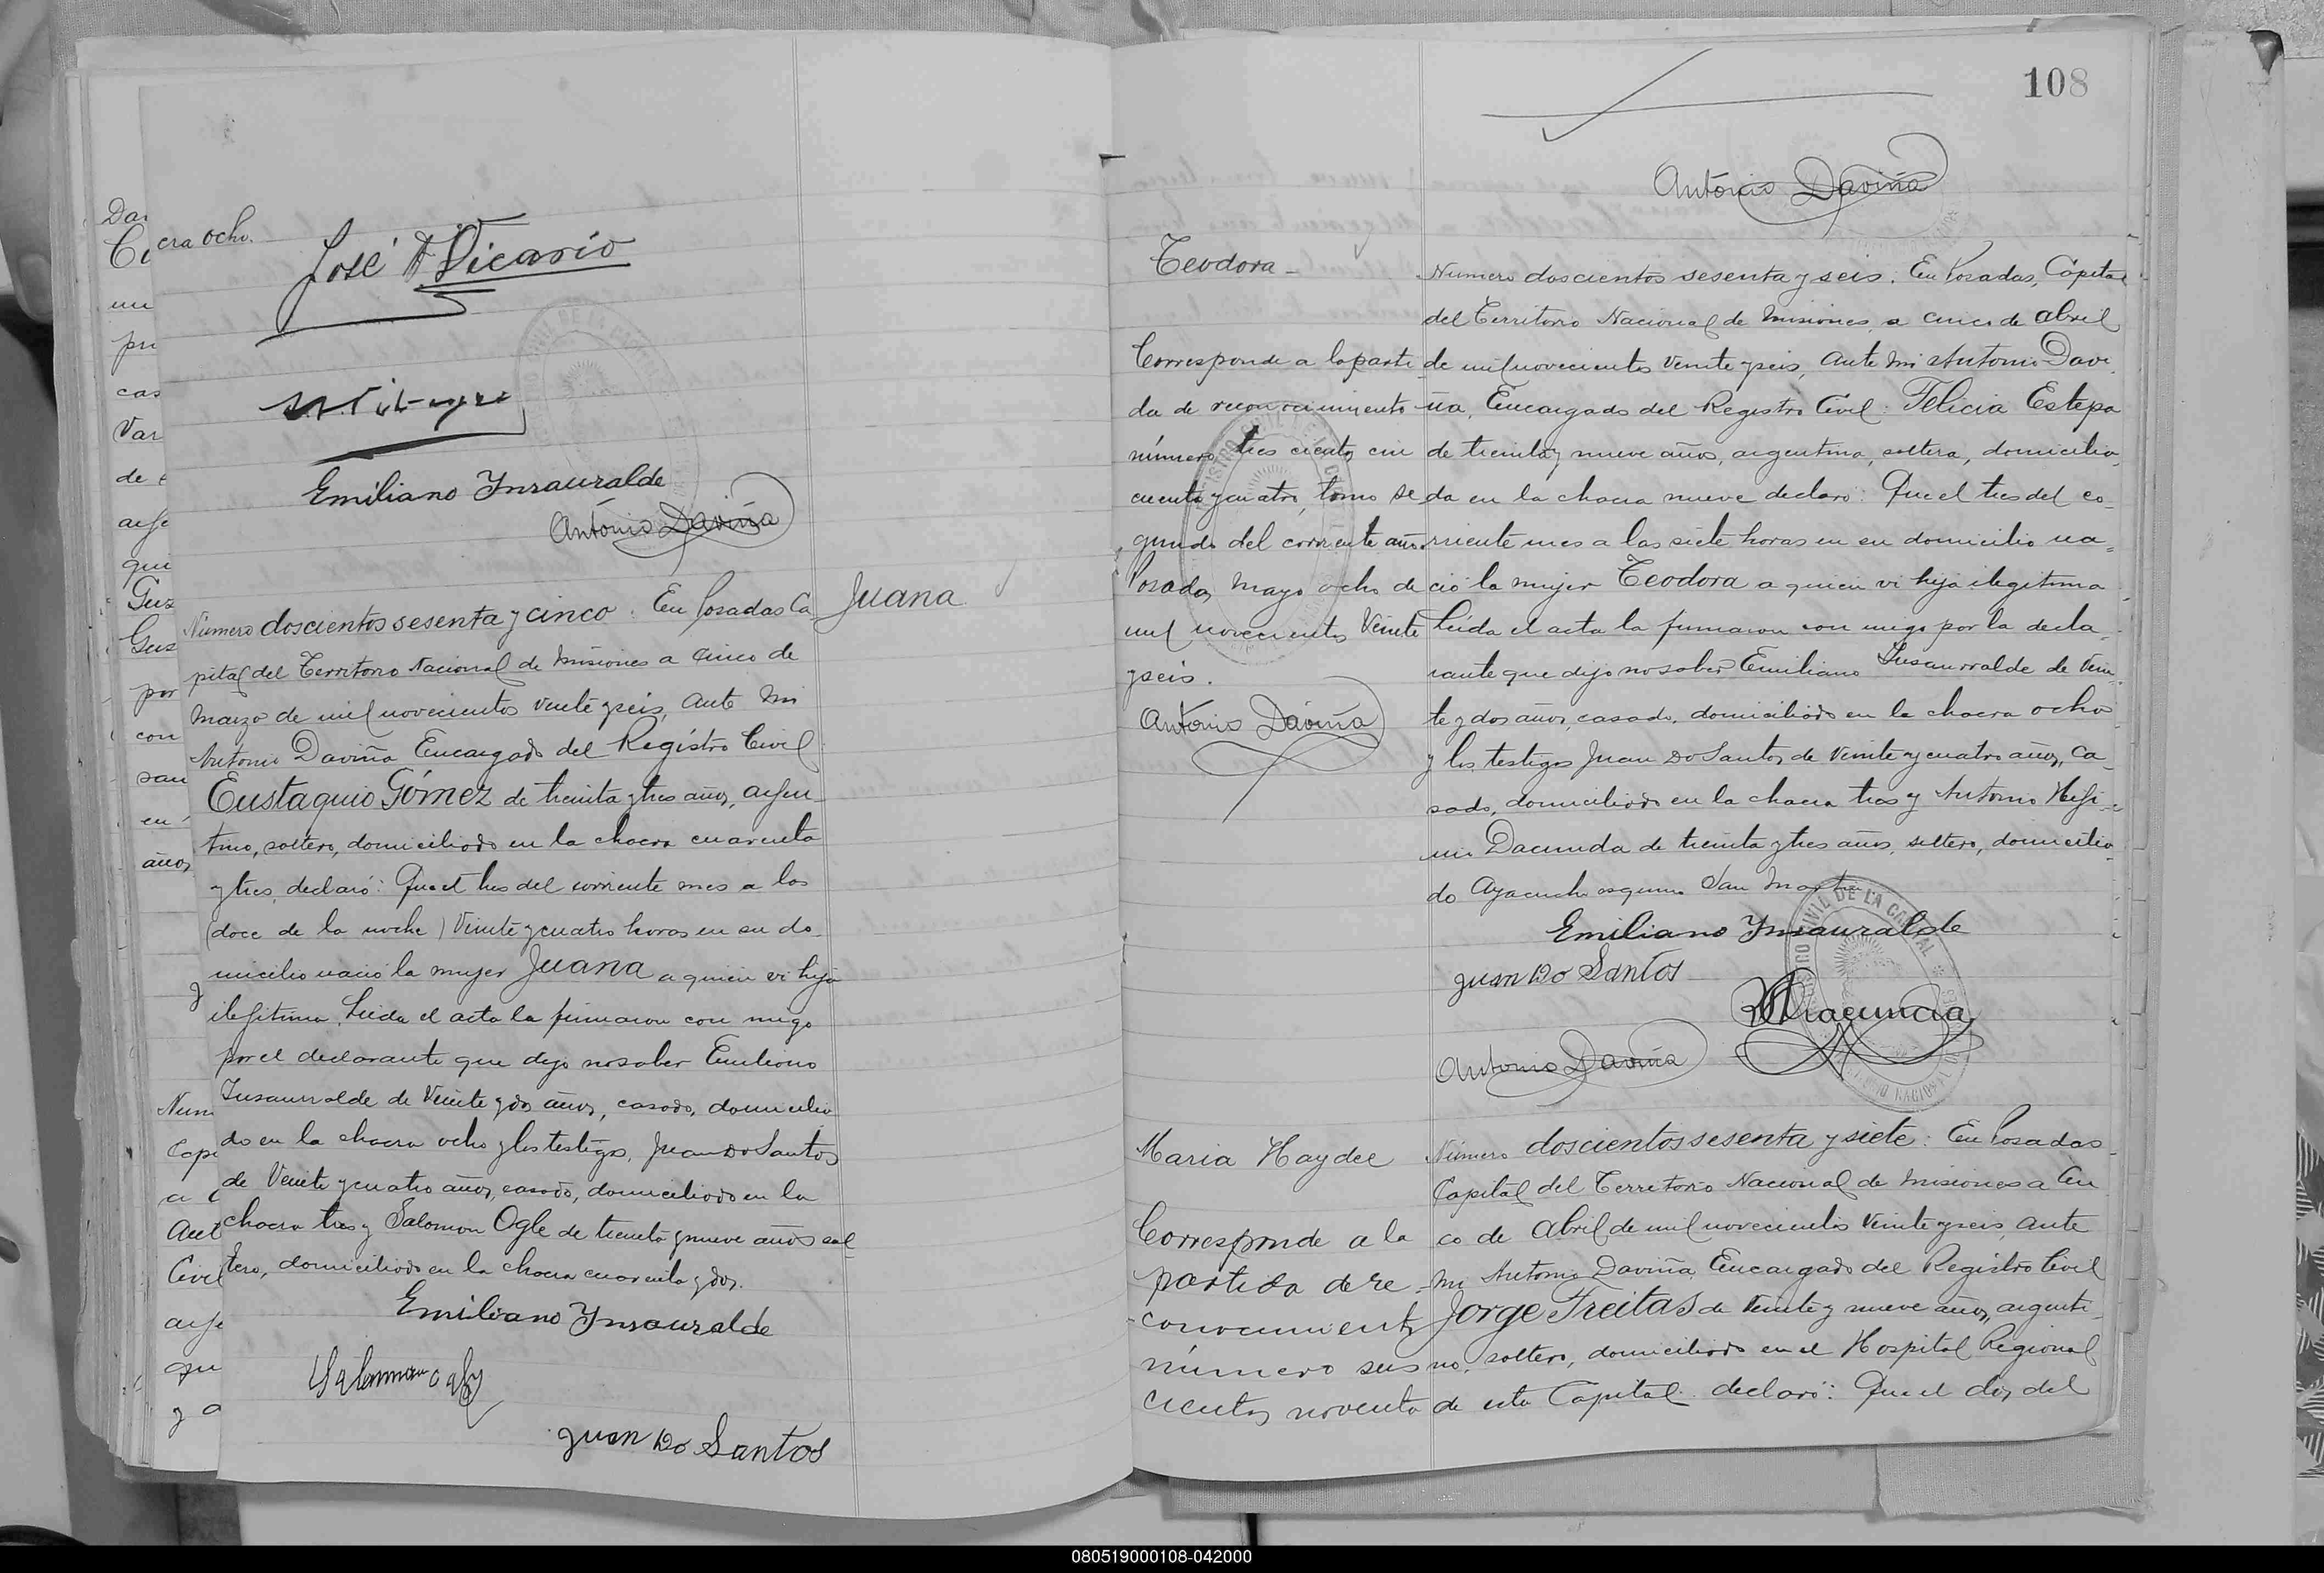 cra ocho.
José A Vicario
Emiliano Ynsauralde
Antonio Daviña
Juana
Número doscientos sesenta y cinco: En Posadas Ca-
pital del Territorio Nacional de Misiones a cinco de
Marzo de mil novecientos veinte y seis, ante mi
Antonio Daviña Encargado del Registro Civil
Eustaquio Gómez de treinta y tres años, argen-
tino, soltero, domiciliado en la chacra cuarenta
y tres, declaró: Que el tres del corriente mes a las
(doce de la noche) Veinte y cuatro horas en su do-
micilio nació la mujer Juana a quien vi hija
ilegitima. Leida el acta la firmaron con migo
por el declarante que dijo no saber Emiliano
Insaurralde de Veinte y dos años, casado, domicilia
do en la chacra ocho y los testigos, Juan Do Santos
de Veinte y cuatro años, casado, domiciliado en la
chacra tres y Salomon Ogle de treinta y nueve años sol
tero, domiciliado en la chacra cuarenta y dos.
Emiliano Ynsauralde
Juan Do Santos
108
Antonio Daviña
Teodora
Corresponde a la parti
da de reconocimiento
número tres ciento cin
cuenta y cuatro, tomo se
gundo del corriente año.
Posadas, Mayo ocho de
mil novecientos Veinte
y seis.
Antonio Daviña
Numero doscientos sesenta y seis. En Posadas, Capital
del Territorio Nacional de Misiones, a cinco de abril
de mil novecientos veinte y seis, ante mi Antonio Davi
ña, Encargado del Registro Civil: Felicia Estepa
de treinta y nueve años, argentina, soltera, domicilia
da en la chacra nueve declaro: Que el tres del co-
rriente mes a las siete horas en su domicilio na-
ció la mujer Teodora a quien vi hija ilegitima
Leida el acta la firmaron con migo por la decla-
rante que dijo no saber Emiliano Insaurralde de Vein-
te y dos años, casado, domiciliado en la chacra ocho
y los testigos Juan Do Santos de Veinte y cuatro años, ca-
sado, domiciliado en la chacra tres y Antonio Higi-
nio Dacunda de treinta y tres años, soltero, domicilia
do Ayacucho esquina San Martin
Emiliano Ynsauralde
Juan Do Santos
Antonio Daviña
Maria Haydee
Corresponde a la
partida de re-
conocimiento
número seis
cientos noventa
Número doscientos sesenta y siete: En Posadas
Capital del Territorio Nacional de Misiones a cin
co de abril de mil novecientos Veinte y seis, ante
mi Antonio Daviña, Encargado del Registro Civil
Jorge Freitas de Veinte y nueve años, argenti-
no, soltero, domiciliado en el Hospital Regional
de esta Capital declaró: Que el dos del
080519000108-042000